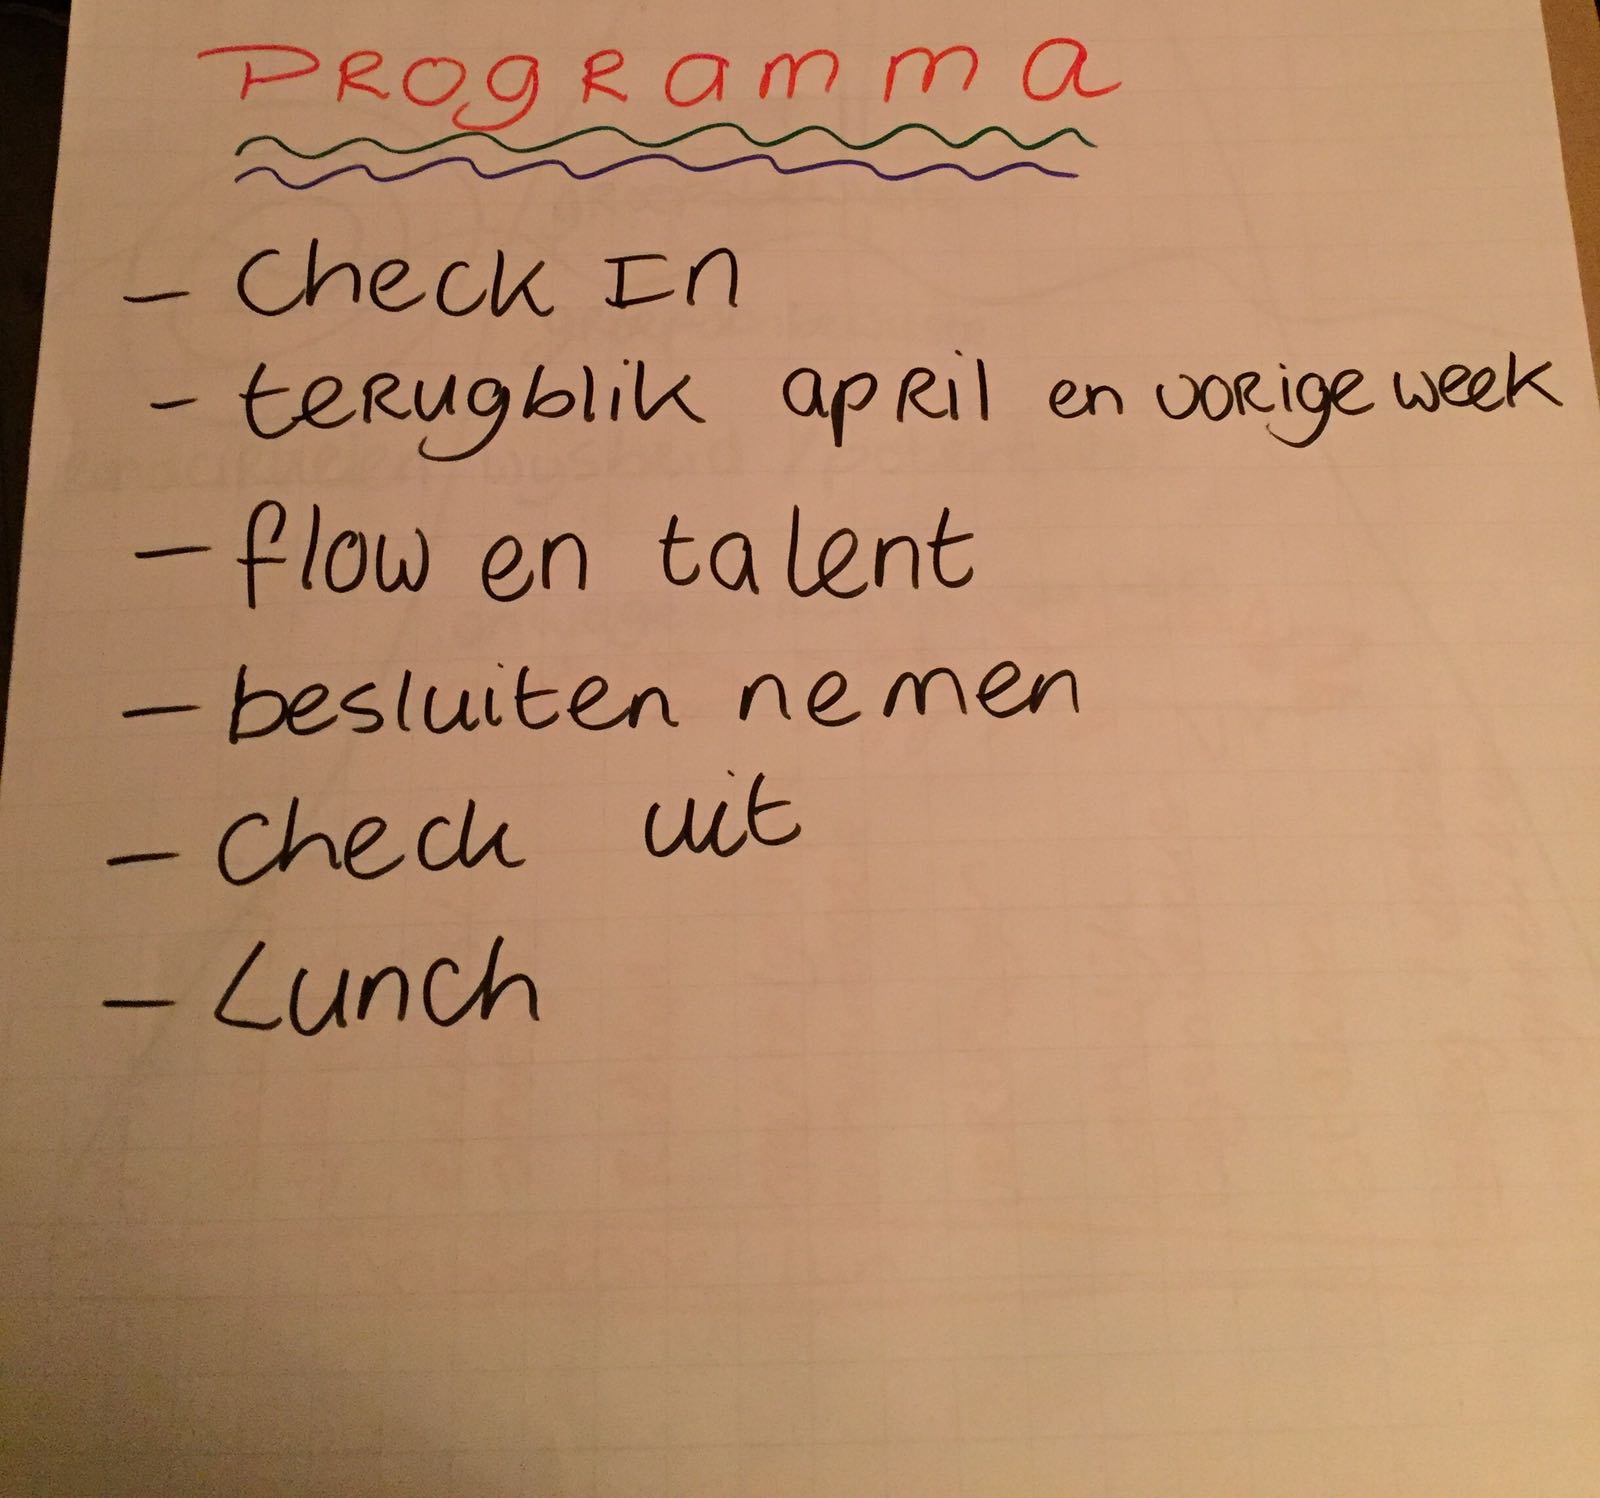 Programma
- Check In
- terugblik april en vorige week
- flow en talent
- besluiten nemen
- Check uit
- Lunch